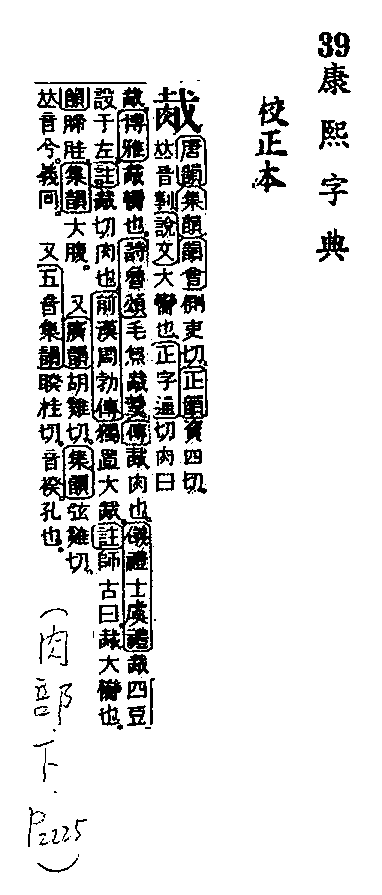 39康熙字典
校正本
胾
唐韻集韻韻會側吏切正韻資四切
𠀤音剚說文大臠也正字通切肉曰
胾博雅胾臠也詩魯頌毛炰胾羹傳胾肉也儀禮士虞禮胾四豆
設于左註胾切肉也前漢周勃傳獨置大胾註師古曰胾大臠也。
韻腣胿集韻大腹。又廣韻胡雞切集韻弦雞切。
𠀤音兮。義同。又五音集韻睽桂切。音褉孔也。
(肉部.下.P2225)